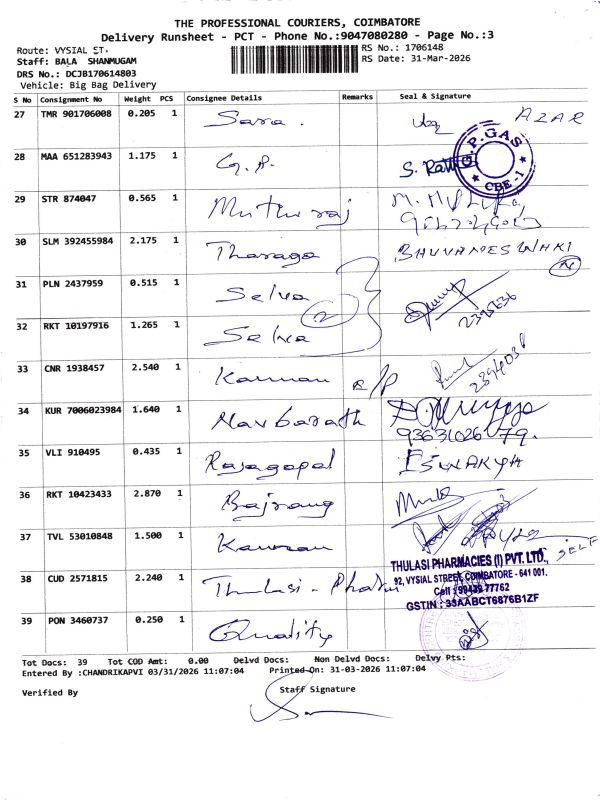 THE PROFESSIONAL COURIERS, COIMBATORE
Delivery Runsheet - PCT - Phone No.:9047080280 - Page No.:3
Route: VYSIAL ST.
RS No.: 1706148
Staff: BALA SHANMUGAM
RS Date: 31-Mar-2026
DRS No.: DCJB170614803
Vehicle: Big Bag Delivery
S No Consignment No Weight PCS Consignee Details Remarks Seal & Signature
27 TMR 901706008 0.205 1 Sara. AZAR
28 MAA 651283943 1.175 1 G.P.
P. GAS
CBE - 1
29 STR 874047 0.565 1 Muthuraj
30 SLM 392455984 2.175 1 Tharaga BHUVANESWARI
31 PLN 2437959 0.515 1 Selva
2
32 RKT 10197916 1.265 1 Selva
33 CNR 1938457 2.540 1 Kannan
34 KUR 7006023984 1.640 1 Navbarath
9363102679.
35 VLI 910495 0.435 1 Rajagopal
36 RKT 10423433 2.870 1 Bajrang
37 TVL 53010848 1.500 1 Kannan SELF
THULASI PHARMACIES (I) PVT. LTD.,
38 CUD 2571815 2.240 1 Thulasi - Pharm 92, VYSIAL STREET, COIMBATORE - 641 001.
Cell : 99439 77762
GSTIN : 33AABCT6876B1ZF
39 PON 3460737 0.250 1 Quality
Tot Docs: 39 Tot COD Amt: 0.00 Delvd Docs: Non Delvd Docs: Delvy Pts:
Entered By :CHANDRIKAPVI 03/31/2026 11:07:04 Printed On: 31-03-2026 11:07:04
Verified By Staff Signature